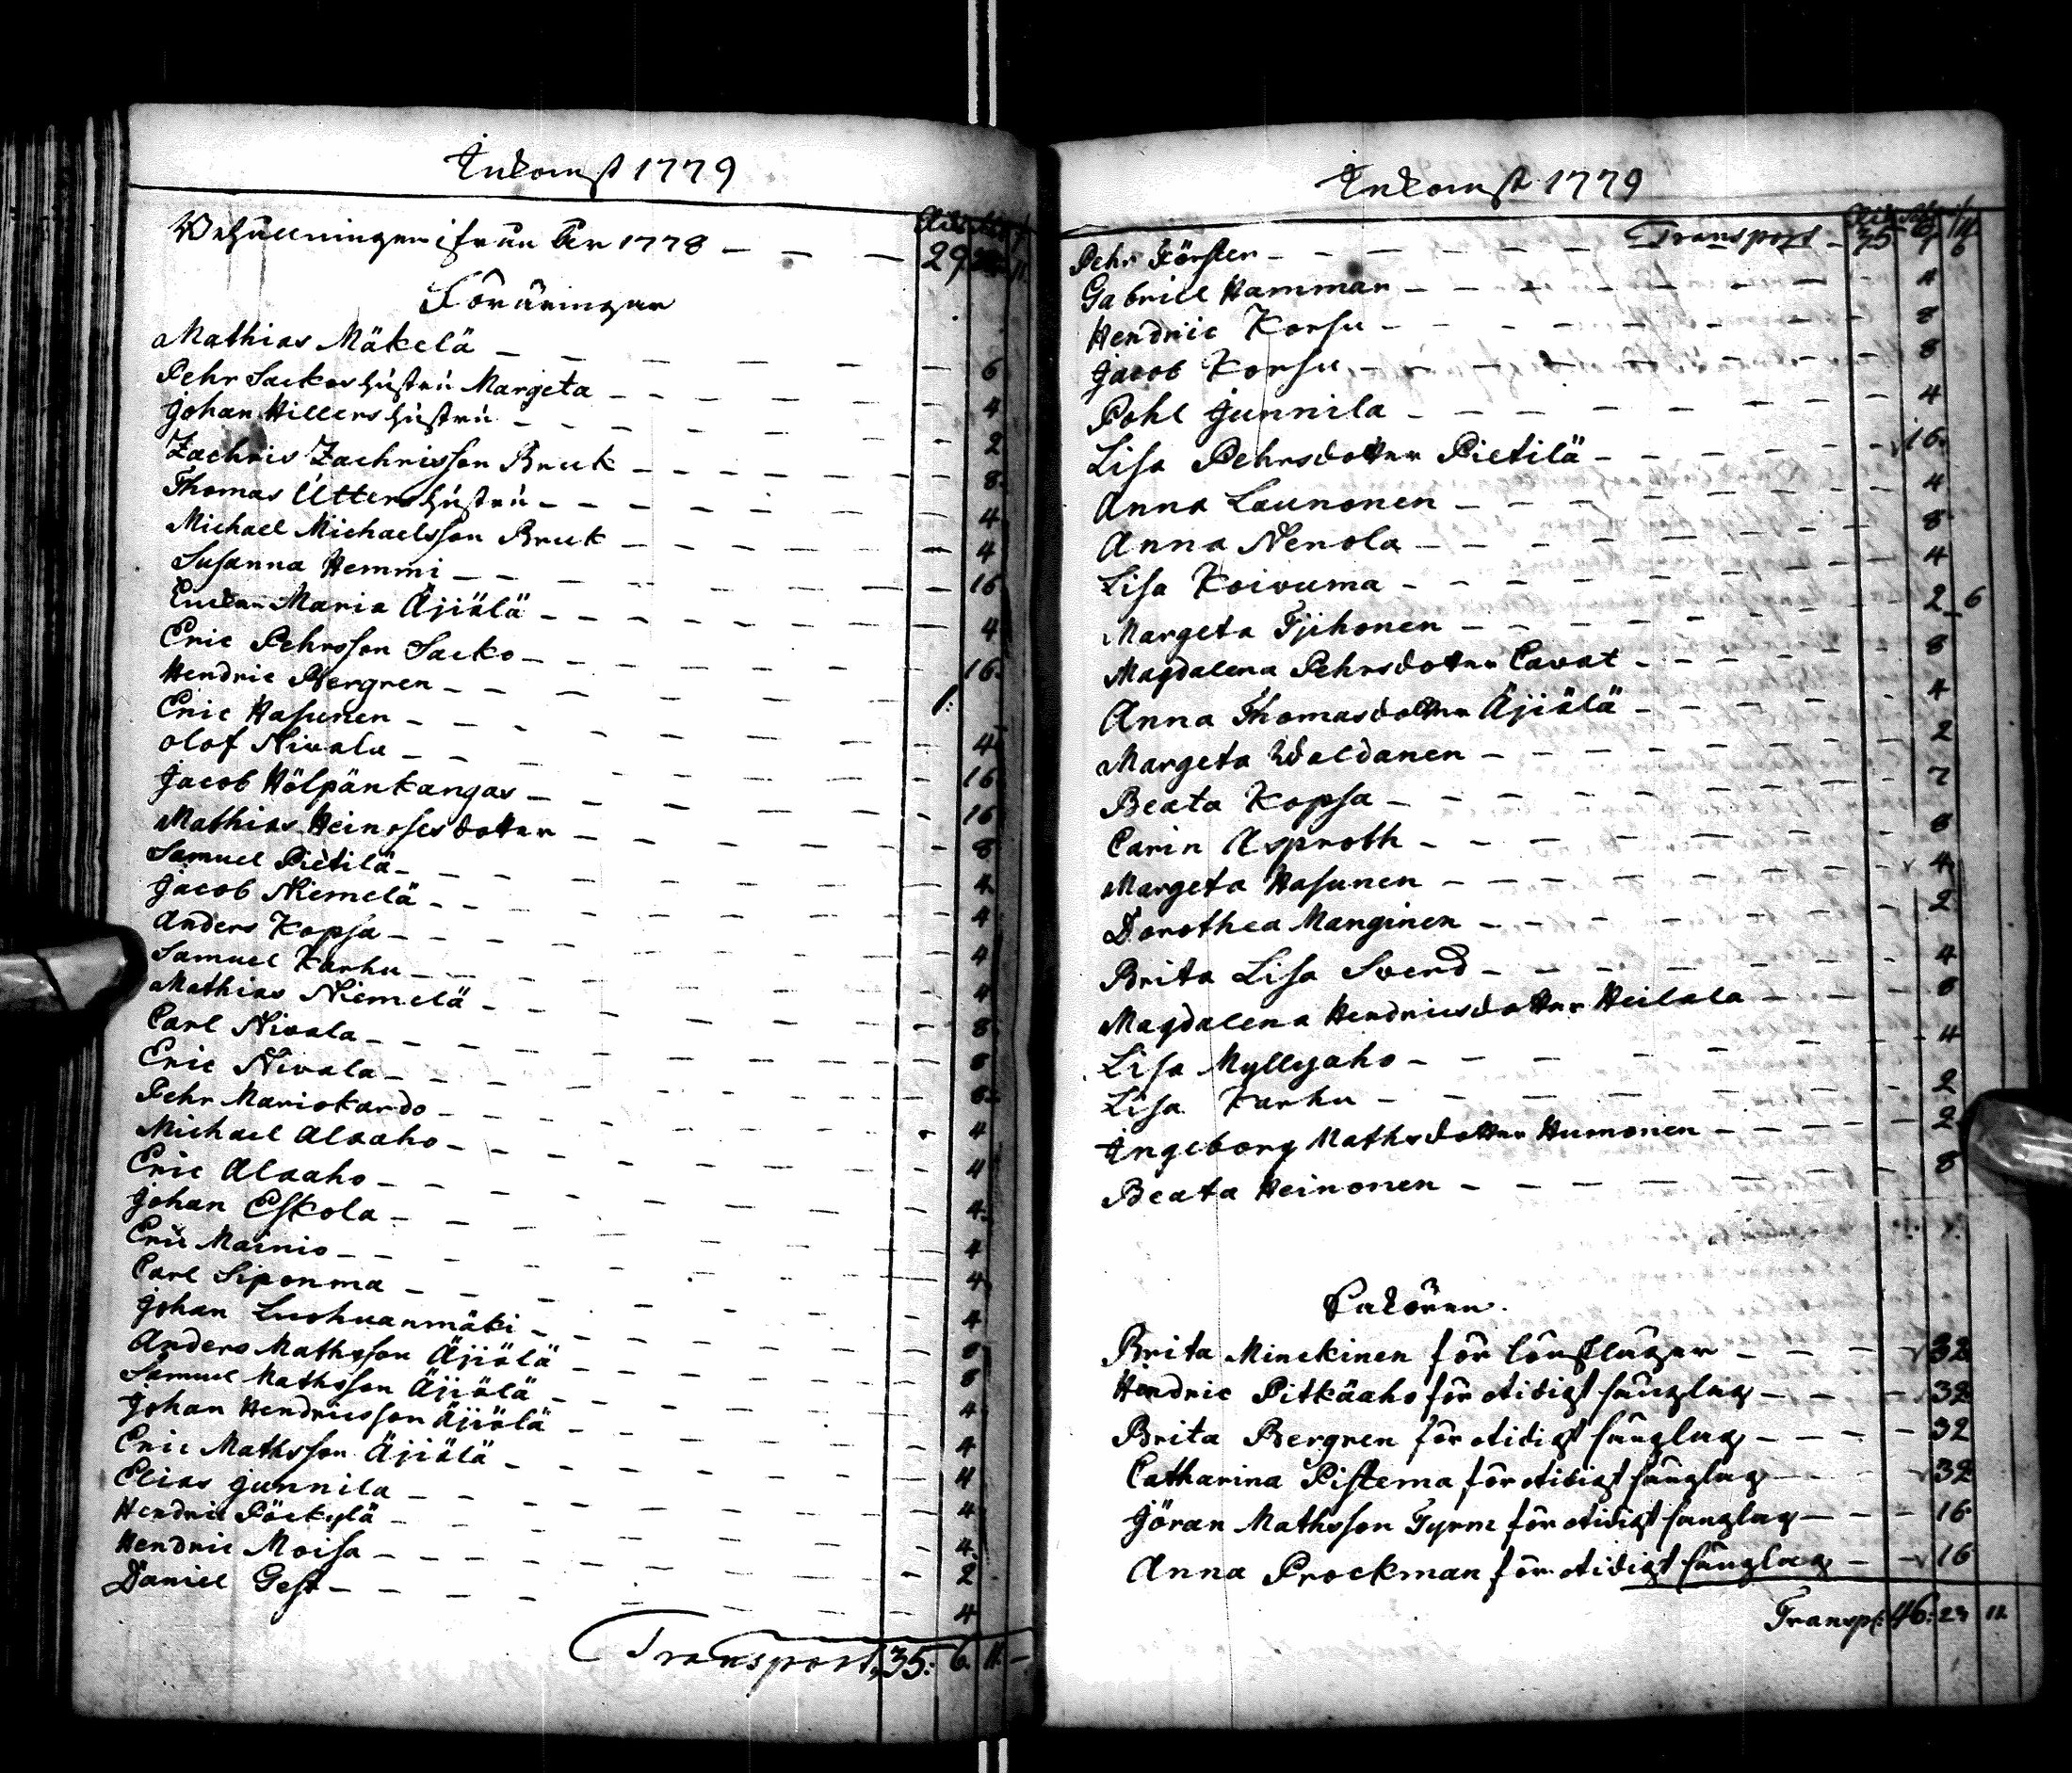 Inkomst 1779
Behållningen ifrån År 1778 — — — 29 11.
Föräringar
Mathias Mäkelä — — — 6
Pehr Sackos hustru Margeta — — — 4
Johan Hillers hustru — — — 2
Zachris Zachrisson Bruk — — — 8.
Thomas Utters hustru — — — 4
Michael Michaelsson Bruk — — — 4
Susanna Hemmi — — — 16
Enkan Maria Äjiälä — — — 4
Eric Pehrsson Sacko — — — 16.
Hendric Bergren — — — 1:
Eric Hasunen — — — 4
Olof Nivala — — — 16
Jacob Hölpänkangas — — — 16
Mathias Heinosesdotter — — — 8
Samuel Pietilä — — — 4
Jacob Niemelä — — — 4
Anders Kopsa — — — 4
Samuel Karhu — — — 4
Mathias Niemelä — — — 8
Carl Nivala — — — 8
Eric Nivala — — — 8
Pehr Mariskardo — — — 4
Michael Alaaho — — — 4
Eric Alaaho — — — 4
Johan Eskola — — — 4
Eric Mainio — — — 4
Carl Siponma — — — 4
Johan Luohuanmäki — — — 8
Anders Mathsson Äjiälä — — — 8
Samuel Mathsson Äjiälä — — — 4
Johan Hendricsson Äjiälä — — — 4
Eric Mathsson Äjiälä — — — 4
Elias Junnila — — — 4
Hendric Päckylä — — — 4
Hendric Moisa — — — 2
Daniel Gest — — — 4
Transport, 35: 6. 11. —
Inkomst 1779
Transport — 35 6 11
Pehr Förster — — —
Gabriel Hamman — — — 4
Hendric Korsu — — — 8
Jacob Korsu — — — 8
Pohl Junnila — — — 4
Lisa Pehrsdotter Pietilä — — — 16.
Anna Launonen — — — 4
Anna Nenola — — — 8
Lisa Koivuma — — — 4
Margeta Tjihonen — — — 2 — 6
Magdalena Pehrsdotter Cavat — — — 8
Anna Thomasdotter Äjiälä — — — 4
Margeta Waldanen — — — 2
Beata Kopsa — — — 7
Carin Asproth — — — 8
Margeta Hasunen — — — 4
Dorothea Manginen — — — 2
Brita Lisa Sverd — — — 4
Magdalena Hendricsdotter Heilala — — — 8
Lisa Myllyaho — — — 4
Lisa Karhu — — — 2
Ingeborg Mathsdotter Humonen — — — 2
Beata Heinonen — — — 8
Sakören.
Brita Minckinen för Lönskläger — — — 32
Hendric Pitkäaho för otidigt sänglag — — — 32
Brita Bergren för otidigt sänglag — — — 32
Catharina Pistema för otidigt sänglag — — — 32
Jöran Mathsson Tyrne för otidigt sänglag — — — 16
Anna Prockman för otidigt sänglag — — — 16
Transpt: 46: 23 11.